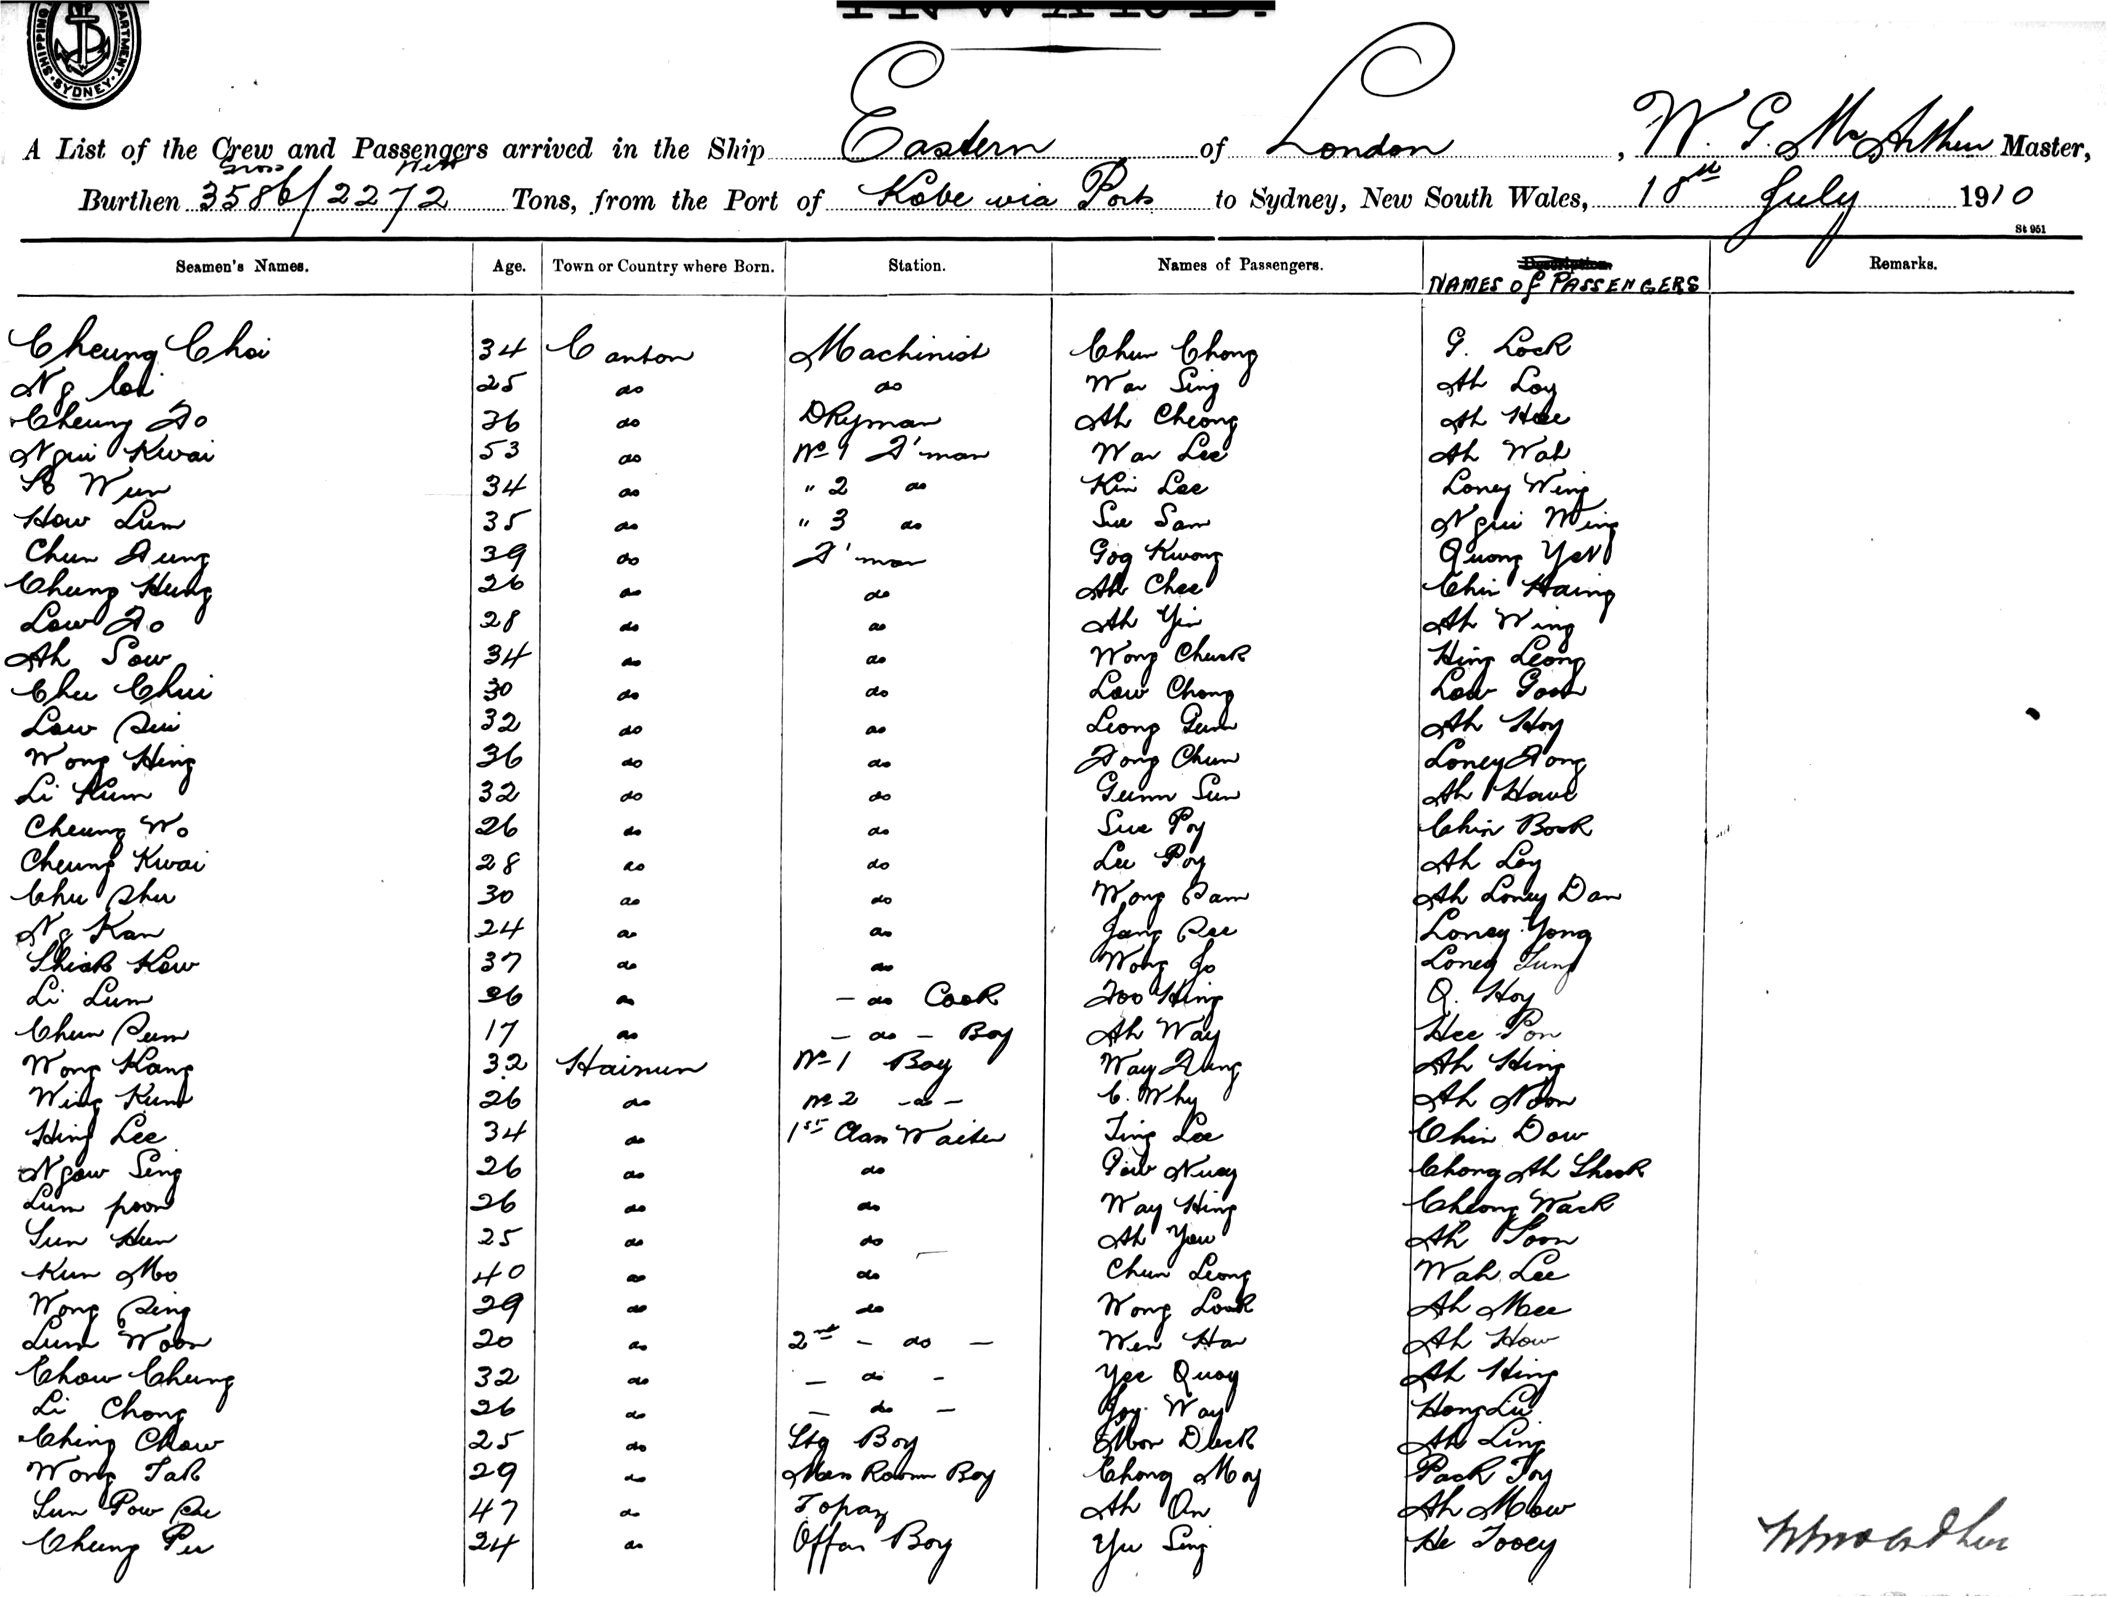 INWARD.
SHIPPING DEPARTMENT SYDNEY
A List of the Crew and Passengers arrived in the Ship Eastern of London, W. G. McArthur Master,
Gross Nett
Burthen 3586/2272 Tons, from the Port of Kobe via Ports to Sydney, New South Wales, 18th July 1910
St 951
Seamen's Names. Age. Town or Country where Born. Station. Names of Passengers. Description. Remarks.
NAMES OF PASSENGERS
Cheung Choi 34 Canton Machinist Chun Chong G. Lock
Ng Loi 25 do do War Sing Ah Loy
Cheung Fo 36 do DKyman Ah Cheong Ah Hee
Ngui Kwai 53 do No 1 F'man War Lee Ah Wah
So Wun 34 do " 2 do Kin Lee Loney Wing
How Lum 35 do " 3 do Sue Sam Ngui Ming
Chun Fung 39 do F'man Gog Kwong Quong Yet
Chung Hung 26 do do Ah Chee Chin Haing
Low Fo 28 do do Ah Yin Ah Wing
Ah Sow 34 do do Wong Chuck Hing Leong
Chu Chui 30 do do Low Chong Low Goon
Low Sui 32 do do Leong Gum Ah Hoy
Wong Hing 36 do do Fong Chun Loney Fong
Li Kum 32 do do Gunn Sun Ah Howe
Cheung Wo 26 do do Sue Poy Chin Book
Cheung Kwai 28 do do Lee Poy Ah Loy
Chu Shu 30 do do Wong Sam Ah Loney Dan
Ng Kan 24 do do Jang See Loney Yong
Shick Kow 37 do do Wong Jo Loney Tung
Li Lum 36 do - do Cook Foo Hing Q. Hoy
Chun Sum 17 do - do - Boy Ah Way Hee Pon
Wong Kang 32 Hainun No 1 Boy Way Fung Ah Hing
Wing Kum 26 do No 2 - do - C. Why Ah Noon
Hing Lee 34 do 1st Class Waiter Ting Lee Chin Dow
Ngow Sing 26 do do Pow Nuey Chong Ah Shook
Lum poon 26 do do Way Hing Cheong Wack
Sun Hun 25 do do Ah You Ah Soon
Kun Mo 40 do do Chun Leong Wah Lee
Wong Sing 29 do do Wong Look Ah Mee
Lum Woon 20 do 2nd - do - Wen Har Ah How
Chow Chung 32 do - do - Yee Quoy Ah Hing
Li Chong 26 do - do - Joy Way Hong Lui
Ching Chow 25 do Stg Boy Mon Duck Ah Ling
Wong Tak 29 do Mess Room Boy Chong Moy Pack Toy
Sun Pow See 47 do Topaz Ah On Ah Mow
Chung Pu 24 do Offrs Boy Yu Sing He Tooey